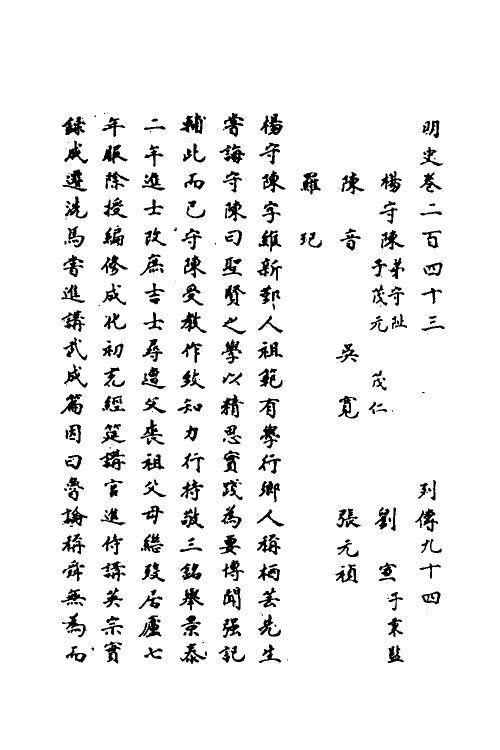 明史卷二百四十三　列傳九十四
楊守陳弟守阯　子茂元　茂仁　劉宣子秉監
陳音　吳寬　張元禎
羅玘
楊守陳字維新鄞人祖範有學行鄉人稱栖芸先生
嘗誨守陳曰聖賢之學以精思實踐為要博聞强記
輔此而已守陳受教作致知力行持敬三銘舉景泰
二年進士改庶吉士尋遭父喪祖父母繼歿居廬七
年服除授編修成化初充經筵講官進侍講英宗實
錄成遷洗馬嘗進講武成篇因曰魯論稱舜無為而